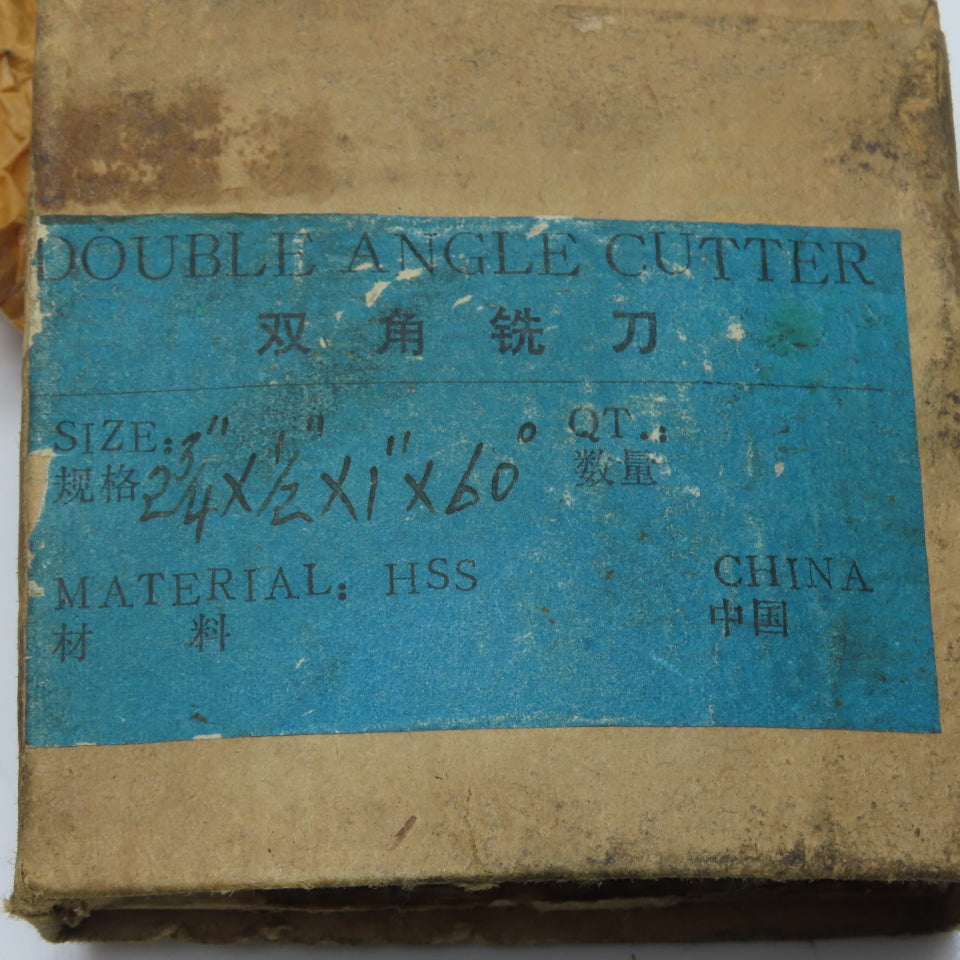 DOUBLE ANGLE CUTTER
双角铣刀
SIZE: 2 3/4" X 1/2" X 1" X 60° QT.:
规格 数量
MATERIAL: HSS CHINA
材料 中国